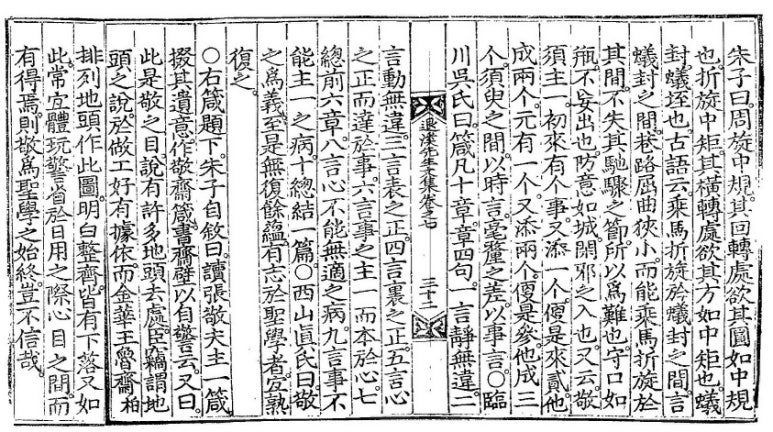 朱子曰周旋中規其回轉處欲其圓如中規
也折旋中矩其橫轉處欲其方如中矩也蟻
封蟻垤也古語云乘馬折旋於蟻封之間言
蟻封之間巷路屈曲狹小而能乘馬折旋於
其間不失其馳驟之節所以爲難也守口如
甁不妄出也防意如城閑邪之入也又云敬
須主一初來有个事又添一个便是來貳他
成兩个元有一个又添兩个便是參他成三
个須臾之間以時言毫釐之差以事言○臨
川吳氏曰箴凡十章章四句一言靜無違二
退溪先生文集卷之七 三十二
言動無違三言表之正四言裏之正五言心
之正而達於事六言事之主一而本於心七
總前六章八言心不能無適之病九言事不
能主一之病十總結一篇○西山眞氏曰敬
之爲義至是無復餘蘊有志於聖學者宜熟
復之
○右箴題下朱子自敘曰讀張敬夫主一箴
掇其遺意作敬齋箴書齋壁以自警云又曰
此是敬之目說有許多地頭去處臣竊謂地
頭之說於做工好有據依而金華王魯齋柏
排列地頭作此圖明白整齊皆有下落又如
此常宜體玩警省於日用之際心目之間而
有得焉則敬爲聖學之始終豈不信哉